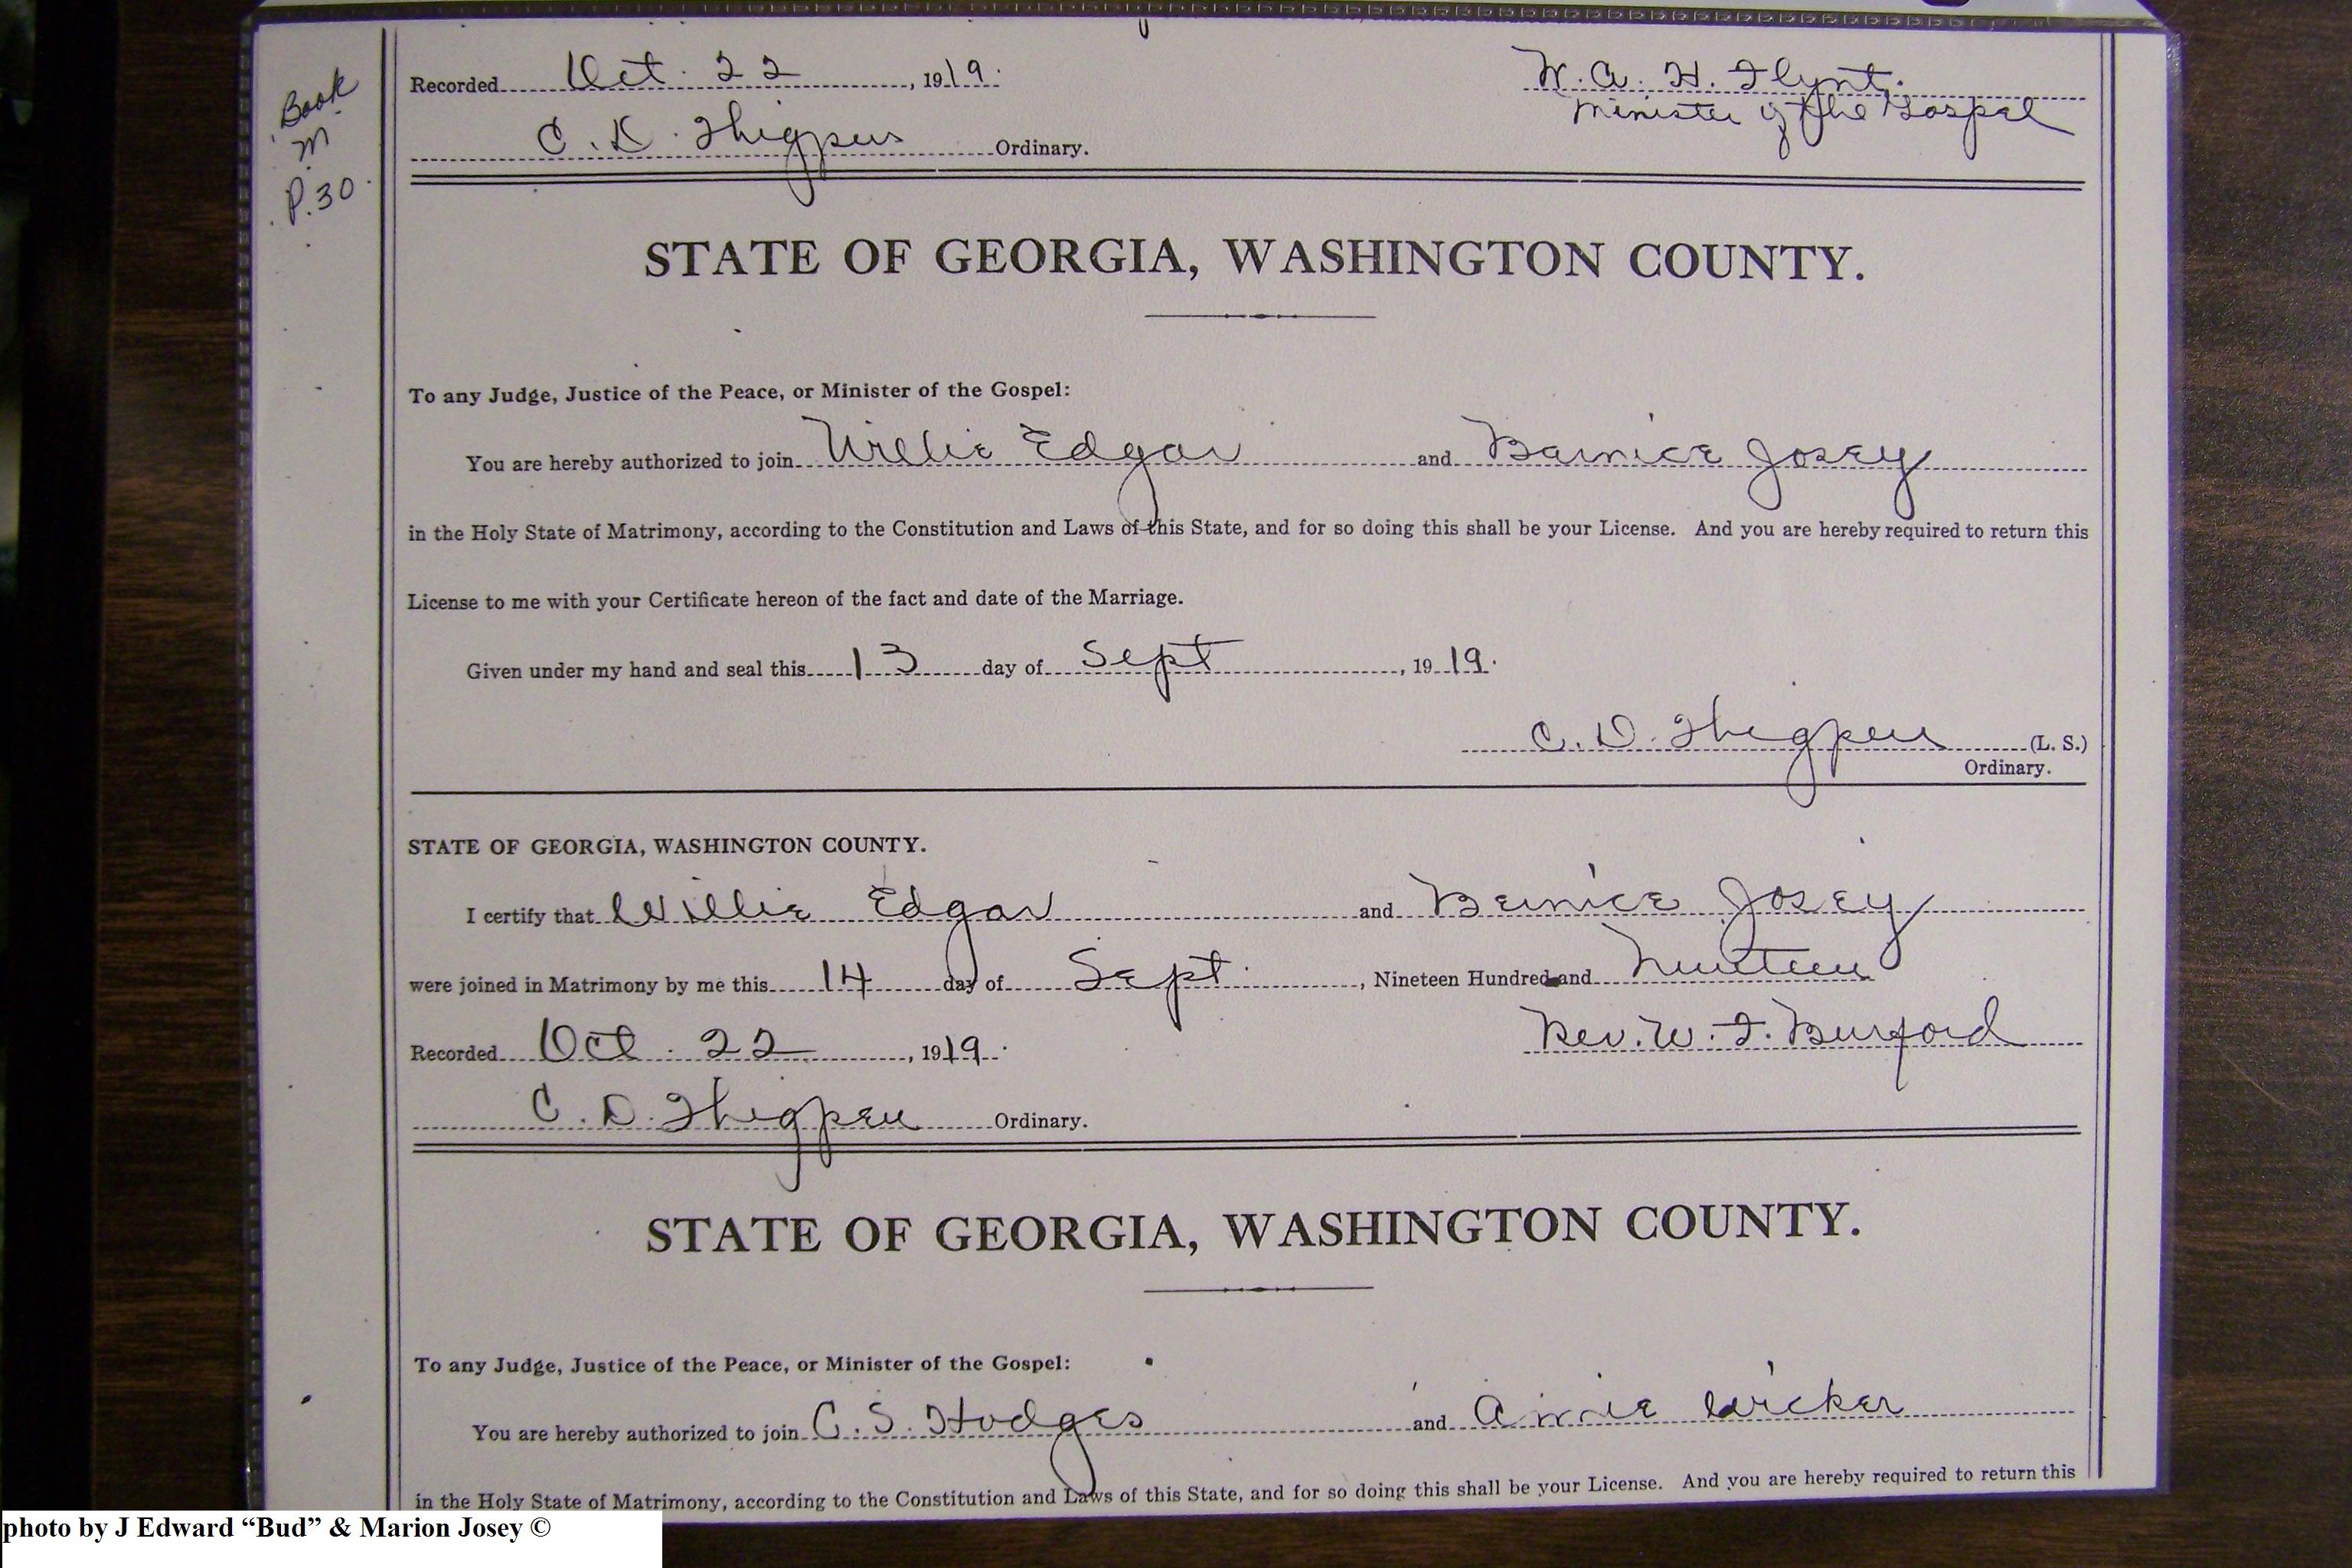 Book
M
P. 30
Recorded Oct. 22, 1919.
W. A. H. Flynt,
Minister of the Gospel
C. D. Thigpen Ordinary.
STATE OF GEORGIA, WASHINGTON COUNTY.
To any Judge, Justice of the Peace, or Minister of the Gospel:
You are hereby authorized to join Willie Edgar and Bernice Josey
in the Holy State of Matrimony, according to the Constitution and Laws of this State, and for so doing this shall be your License. And you are hereby required to return this
License to me with your Certificate hereon of the fact and date of the Marriage.
Given under my hand and seal this 13 day of Sept, 1919.
C. D. Thigpen (L. S.)
Ordinary.
STATE OF GEORGIA, WASHINGTON COUNTY.
I certify that Willie Edgar and Bernice Josey
were joined in Matrimony by me this 14 day of Sept., Nineteen Hundred and Nineteen
Recorded Oct. 22, 1919.
Rev. W. F. Burford
C. D. Thigpen Ordinary.
STATE OF GEORGIA, WASHINGTON COUNTY.
To any Judge, Justice of the Peace, or Minister of the Gospel:
You are hereby authorized to join C. S. Hodges and Annie Wicker
in the Holy State of Matrimony, according to the Constitution and Laws of this State, and for so doing this shall be your License. And you are hereby required to return this
photo by J Edward “Bud” & Marion Josey ©